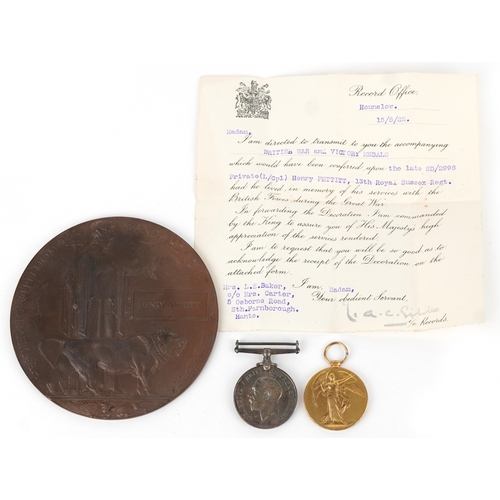 Record Office,
Hounslow.
15/5/22.
Madam,
I am directed to transmit to you the accompanying
BRITISH WAR and VICTORY MEDALS
which would have been conferred upon the late SD/2998
Private(L/Cpl) Henry PETTITT, 13th Royal Sussex Regt.
had he lived in memory of his services with the
British Forces during the Great War.
In forwarding the Decoration I am commanded
by the King to assure you of His Majesty's high
appreciation of the services rendered.
I am to request that you will be so good as to
acknowledge the receipt of the Decoration on the
attached form.
I am,
Madam,
Your obedient Servant,
Mrs. L.E. Baker,
c/o Mrs. Carter,
5 Osborne Road,
Sth.Farnborough.
Hants.
i/c Records.